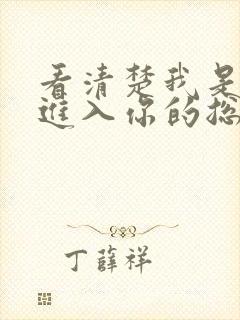 看清楚我是
进入你的总
丁薛祥